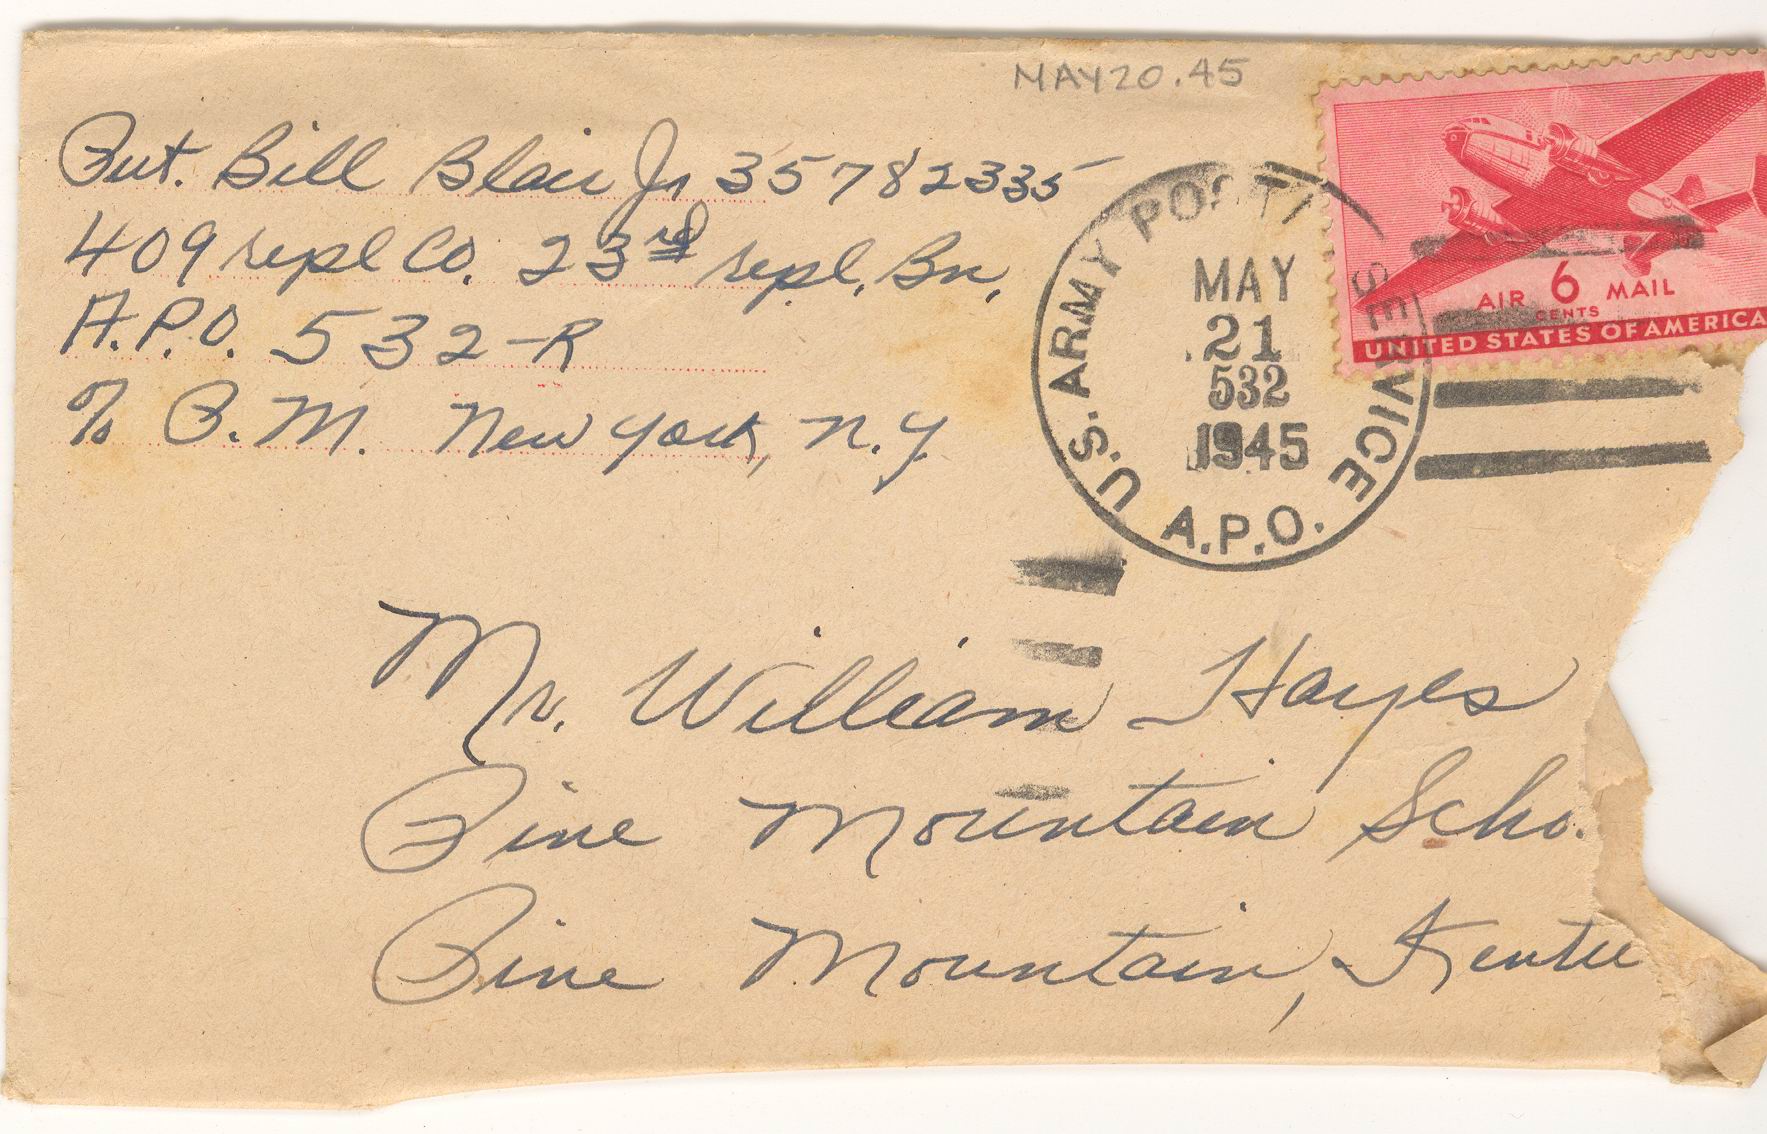 MAY 20.45
Pvt. Bill Blair Jr 35782335
409 repl Co. 23rd repl. Bn.
A.P.O. 532-R
% P.M. New York, N.Y.
U.S. ARMY POSTAL SERVICE
MAY
21
532
1945
A.P.O.
AIR 6 MAIL
CENTS
UNITED STATES OF AMERICA
Mr. William Hayes
Pine Mountain Scho.
Pine Mountain, Kentu